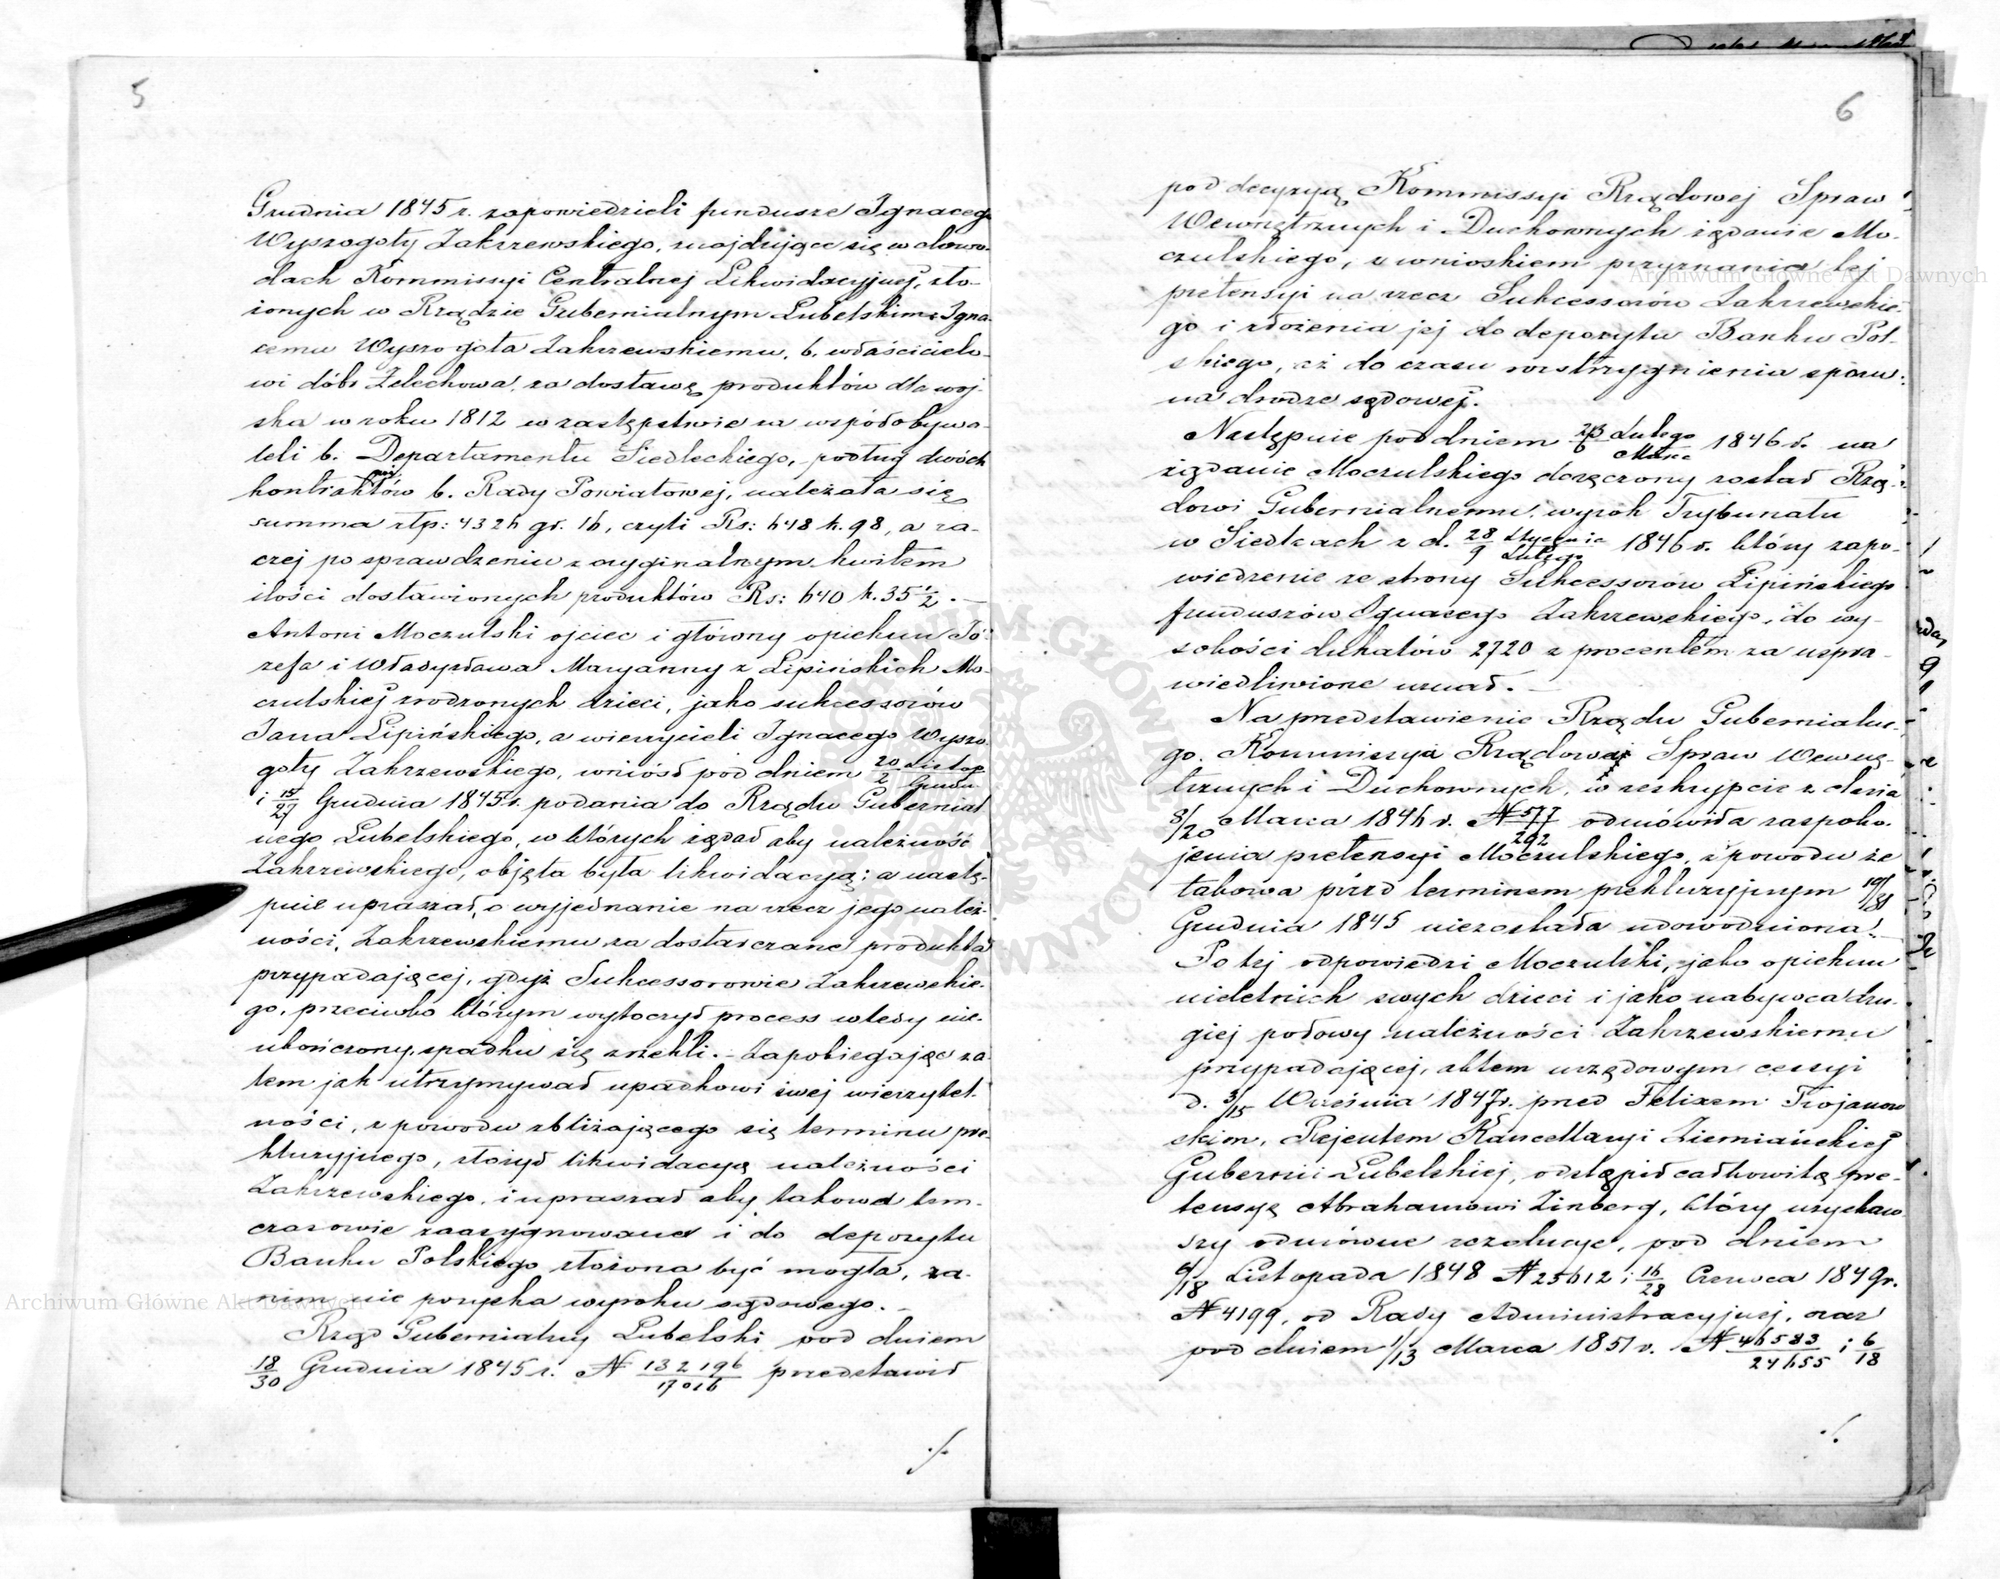 5
Grudnia 1845 r. zapowiedzieli fundusze Ignacego
Wyszogoty Zakrzewskiego, znajdujące się w dowo-
dach Kommissyi Centralnej Likwidacyjnej, zło-
żonych w Rządzie Gubernialnym Lubelskim. Igna-
cemu Wyszogota Zakrzewskiemu, b. właścicielo-
wi dóbr Żelechowa, za dostawę produktów dla woj-
ska w roku 1812 w zastępstwie za współobywa-
teli b. Departamentu Siedleckiego, podług dwóch
kontraktów b. Rady Powiatowej, należała się
summa złp: 4326 gr. 16, czyli Rs: 648 k. 98, a ra-
czej po sprawdzeniu z oryginalnym kwitem
ilości dostawionych produktów Rs: 640 k. 35 1/2. —
Antoni Moczulski ojciec i główny opiekun Jó-
zefa i Władysława Maryanny z Lipińskich Mo-
czulskiej zrodzonych dzieci, jako sukcessorów
Jana Lipińskiego, a wierzycieli Ignacego Wyszo-
goty Zakrzewskiego, wniósł pod dniem 20/2 Listop/Grudn
i 15/27 Grudnia 1845 r. podania do Rządu Gubernial
nego Lubelskiego, w których żądał aby należność
Zakrzewskiego, objęta była likwidacyą; a nastę-
pnie upraszał, o wyjednanie na rzecz jego należ-
ności, Zakrzewskiemu za dostarczane produkta
przypadającej, gdyż Sukcessorowie Zakrzewskie-
go, przeciwko którym wytoczył process wtedy nie-
ukończony, spadku się zrzekli. — Zapobiegając za-
tem jak utrzymywał upadkowi swej wierzytel-
ności, z powodu zbliżającego się terminu pre-
kluzyjnego, złożył likwidacyę należności
Zakrzewskiego, i upraszał aby takowa tym-
czasowie zaasygnowana i do depozytu
Banku Polskiego złożona być mogła, za-
nim nie pozyska wyroku sądowego. —
Rząd Gubernialny Lubelski pod dniem
18/30 Grudnia 1845 r. N 132196/17016 przedstawił
./.
6
pod decyzyą Kommissyi Rządowej Spraw
Wewnętrznych i Duchownych żądanie Mo-
czulskiego, z wnioskiem przyznania tej
pretensyi na rzecz Sukcessorów Zakrzewskie-
go i złożenia jej do depozytu Banku Pol-
skiego, aż do czasu rozstrzygnienia sporu
na drodze sądowej.
Następnie pod dniem Lutego/Marca 1846 r. na
żądanie Moczulskiego doręczony został Rzą-
dowi Gubernialnemu, wyrok Trybunału
w Siedlcach z d. 28/9 Stycznia/Lutego 1846 r. który zapo-
wiedzenie ze strony Sukcessorów Lipińskiego
funduszów Ignacego Zakrzewskiego, do wy-
sokości dukatów 2720 z procentem za uspra-
wiedliwione uznał. —
Na przedstawienie Rządu Gubernialne-
go, Kommissya Rządowa Spraw Wewnę-
trznych i Duchownych, w reskrypcie z dnia
8/20 Marca 1846 r. N 577/292 odmówiła zaspoko-
jenia pretensyi Moczulskiego, z powodu że
takowa przed terminem prekluzyjnym 19/31
Grudnia 1845 niezostała udowodniona. —
Po tej odpowiedzi Moczulski, jako opiekun
nieletnich swych dzieci i jako nabywca dru-
giej połowy należności Zakrzewskiemu
przypadającej, aktem urzędowym cessyi
d. 3/15 Września 1847 r. przed Felixem Trojanow
skim, Rejentem Kancellaryi Ziemiańskiej
Gubernii Lubelskiej, odstąpił całkowitą pre-
tensyę Abrahamowi Zinberg, który uzyskaw
szy odmówne rezolucye, pod dniem
6/18 Listopada 1848 N 25612 i 16/28 Czerwca 1849 r.
N 4199, od Rady Administracyjnej, oraz
pod dniem 1/13 Marca 1851 r. N 46583/24655 i 6/18
./.
Archiwum Główne Akt Dawnych
Archiwum Główne Akt Dawnych
ARCHIWUM GŁÓWNE AKT DAWNYCH